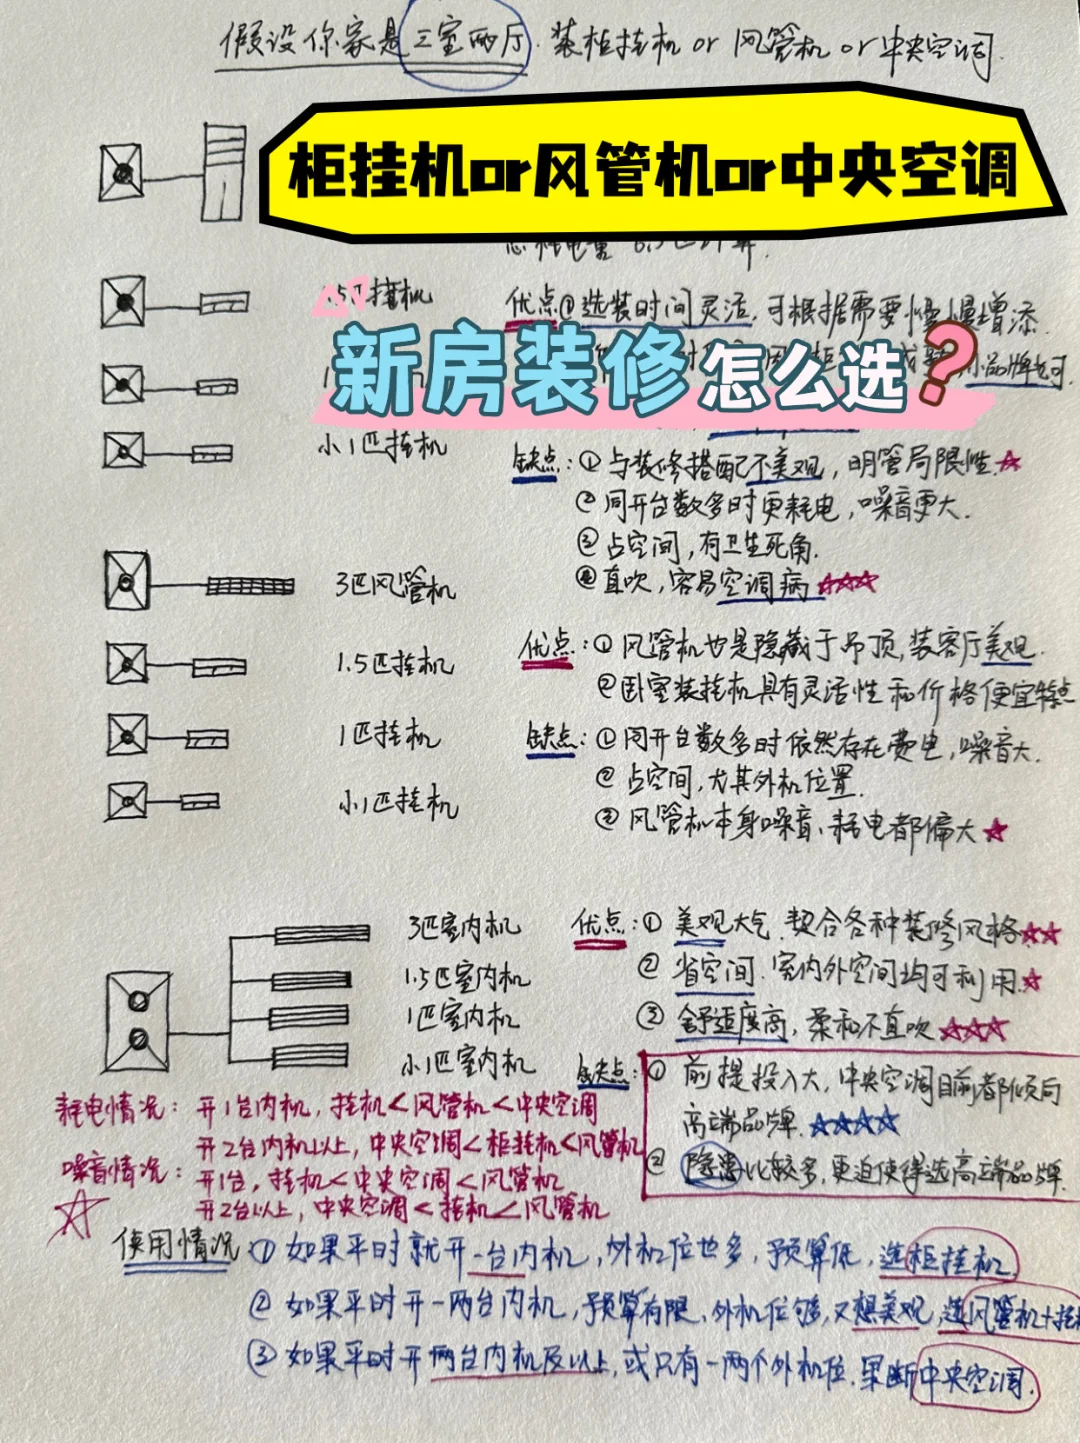 假设你家是三室两厅.装柜挂机or风管机or中央空调.
柜挂机or风管机or中央空调
总耗电量
挂机
优点①选装时间灵活,可根据需要慢慢增添
新房装修怎么选?
小品牌也可.
小1匹挂机
缺点:①与装修搭配不美观,明管局限性.
②同开台数多时更耗电,噪音更大.
③占空间,有卫生死角.
④直吹,容易空调病
3匹风管机
优点:①风管机也是隐藏于吊顶,装客厅美观.
1.5匹挂机
②卧室装挂机具有灵活性和价格便宜特点
1匹挂机
缺点:①同开台数多时依然存在费电,噪音大.
②占空间,尤其外机位置.
小1匹挂机
③风管机本身噪音、耗电都偏大
3匹室内机
优点:①美观大气.契合各种装修风格
1.5匹室内机
②省空间.室内外空间均可利用.
1匹室内机
③舒适度高,柔和不直吹
小1匹室内机
缺点:①前提投入大,中央空调目前都倾向
高端品牌.
②隐患比较多,更迫使得选高端品牌.
耗电情况:开1台内机,挂机<风管机<中央空调
开2台内机以上,中央空调<柜挂机<风管机
噪音情况:开1台,挂机<中央空调<风管机
开2台以上,中央空调<挂机<风管机
使用情况①如果平时就开一台内机,外机位也多,预算低,选柜挂机.
②如果平时开一两台内机,预算有限、外机位够,又想美观,选风管机+挂机
③如果平时开两台内机及以上,或只有一两个外机位.果断中央空调.